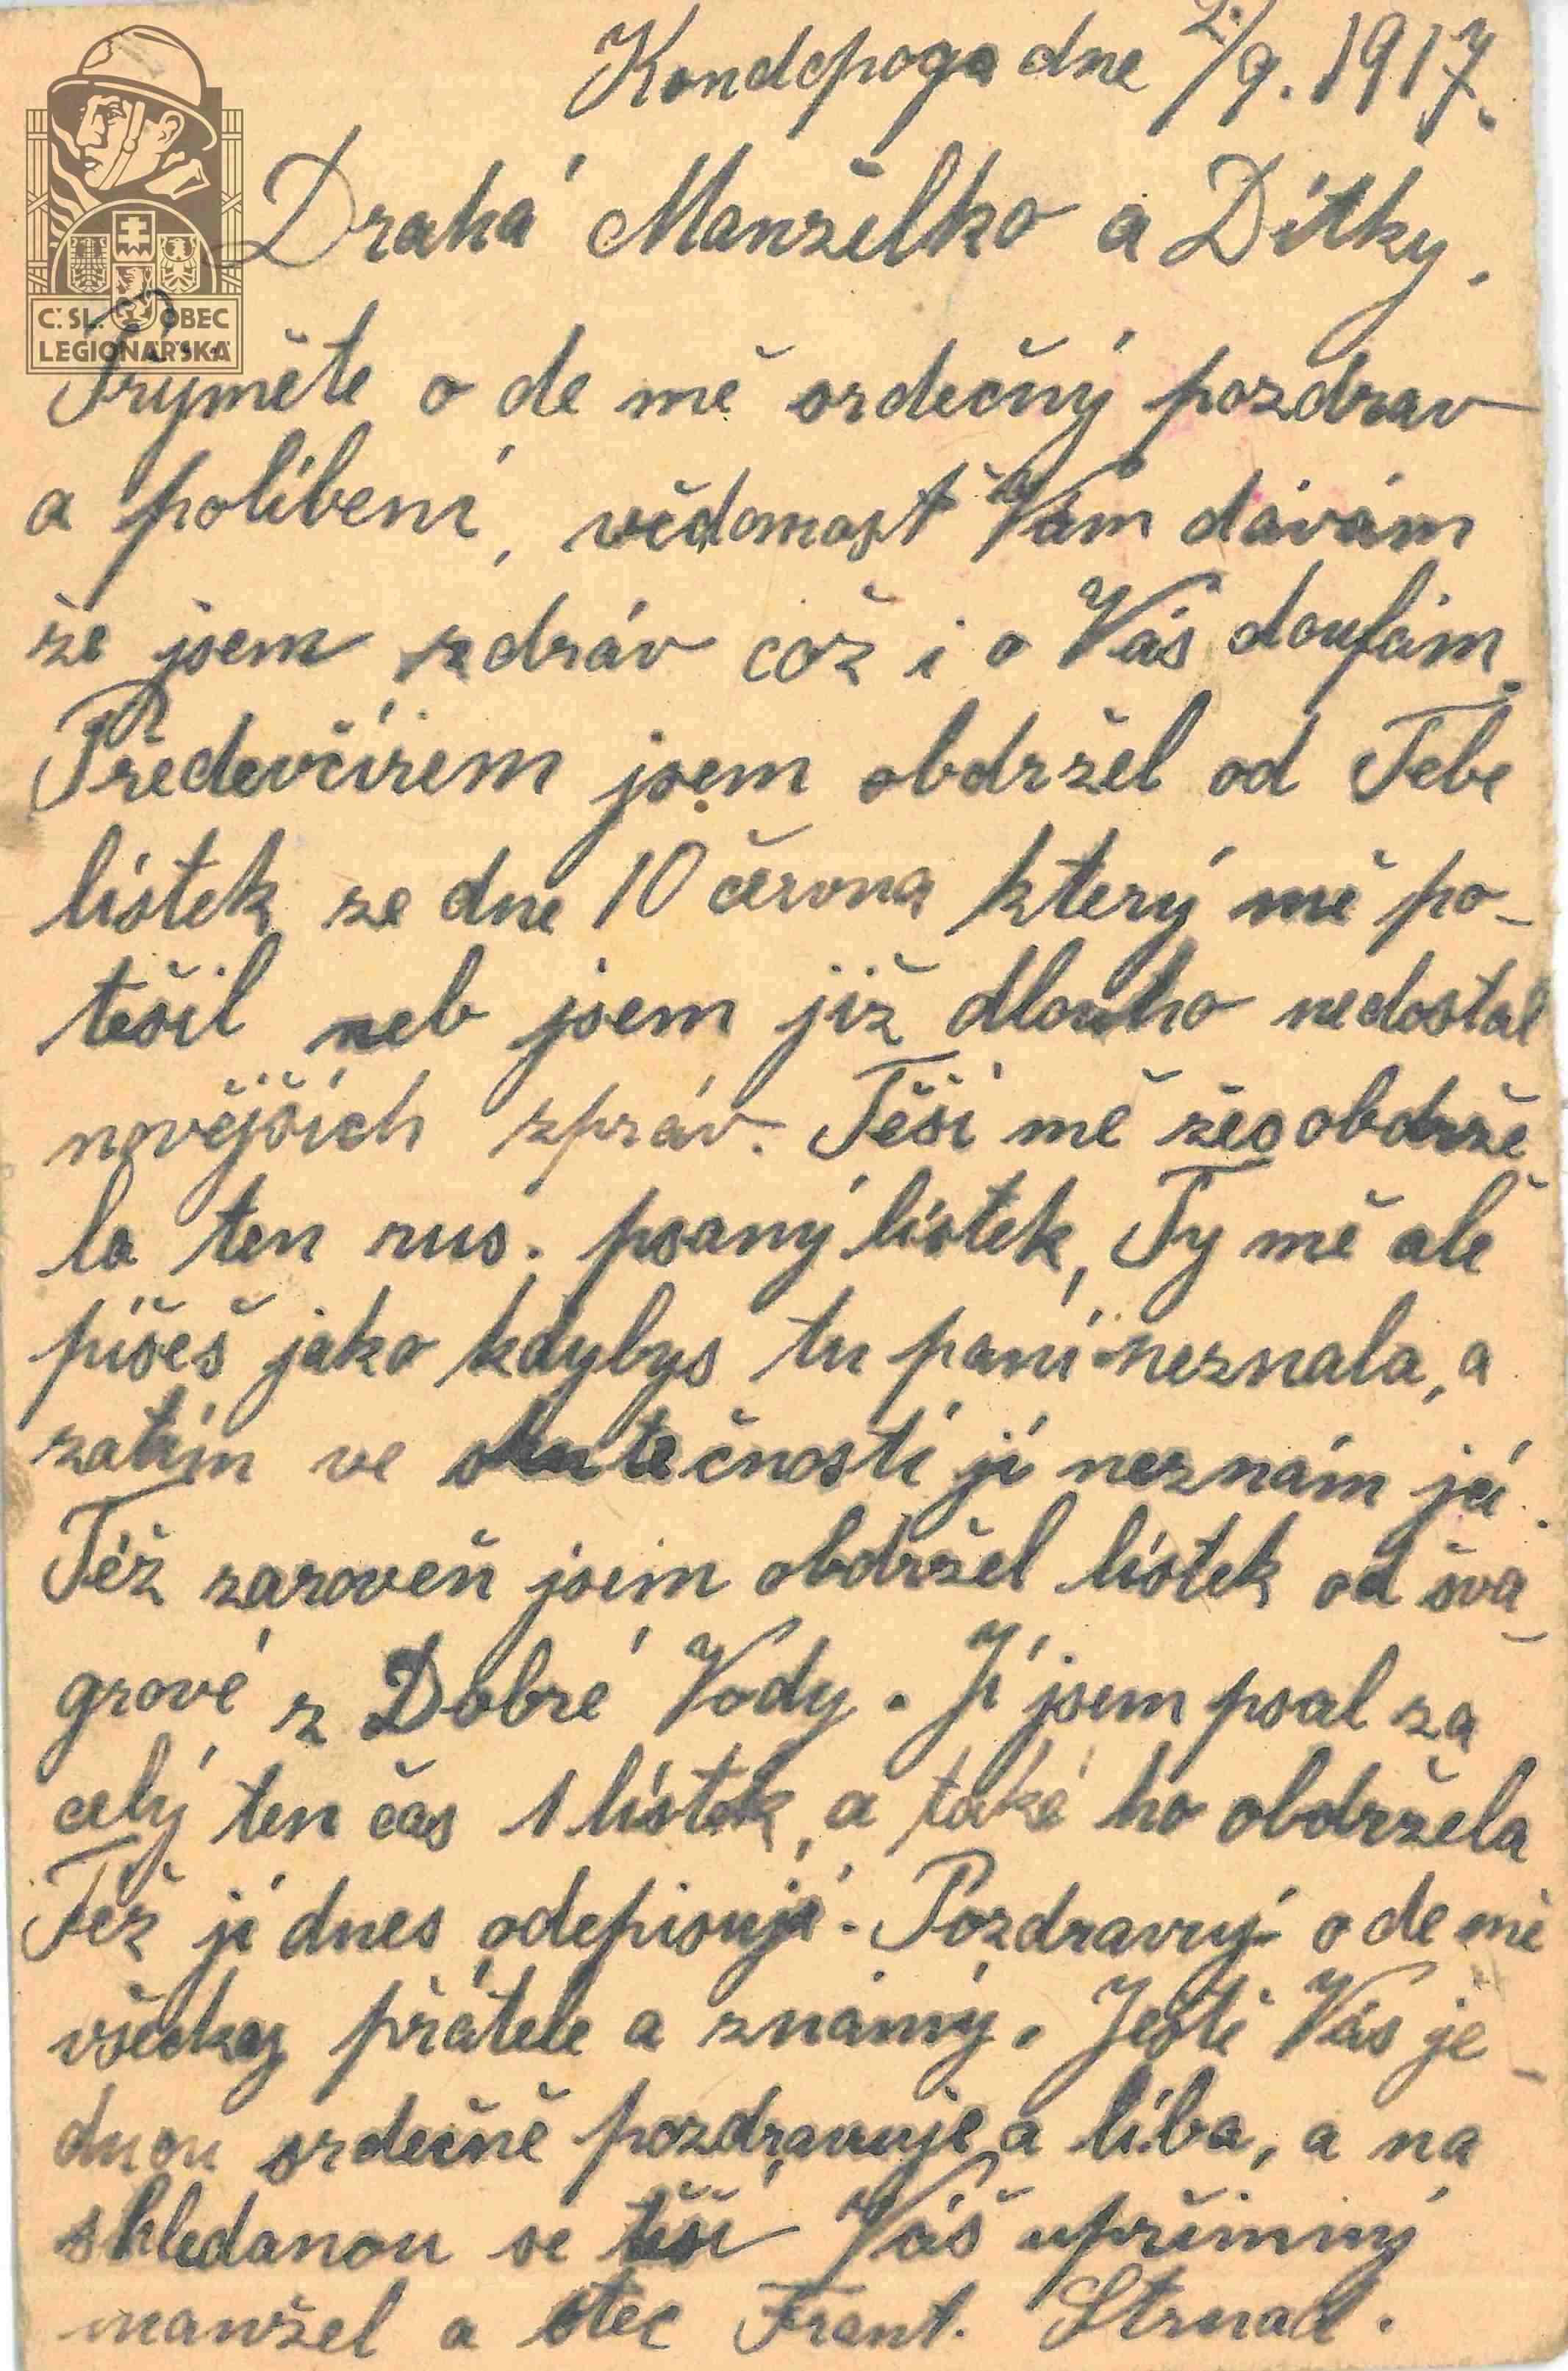 Kondopoga dne 2./9. 1917.
Drahá Manželko a Dítky,
C. SL. OBEC
LEGIONÁŘSKÁ
Tryměte o de mě srdečný pozdrav
a políbení, vědomost Vám dávám
že jsem zdráv což i o Vás doufám.
Předevčírem jsem obdržel od Tebe
lístek ze dne 10 června který mě po-
těšil neb jsem již dlouho nedostal
novějších zpráv. Těší mě žes obdrže
la ten rus. psaný lístek, Ty mě ale
píšeš jako kdybys tu paní neznala, a
zatím ve skutečnosti jí neznám já.
Též zaroveň jsem obdržel lístek od šva-
grové z Dobré Vody. Jí jsem psal za
celý ten čas 1 lístek, a také ho obdržela
Též jí dnes odepisuji. Pozdravuj o de mě
všecky přátele a známý. Ještě Vás je-
dnou srdečně pozdravuje a líba, a na
shledanou se těší Váš upřímný
manžel a otec Frant. Strnad.